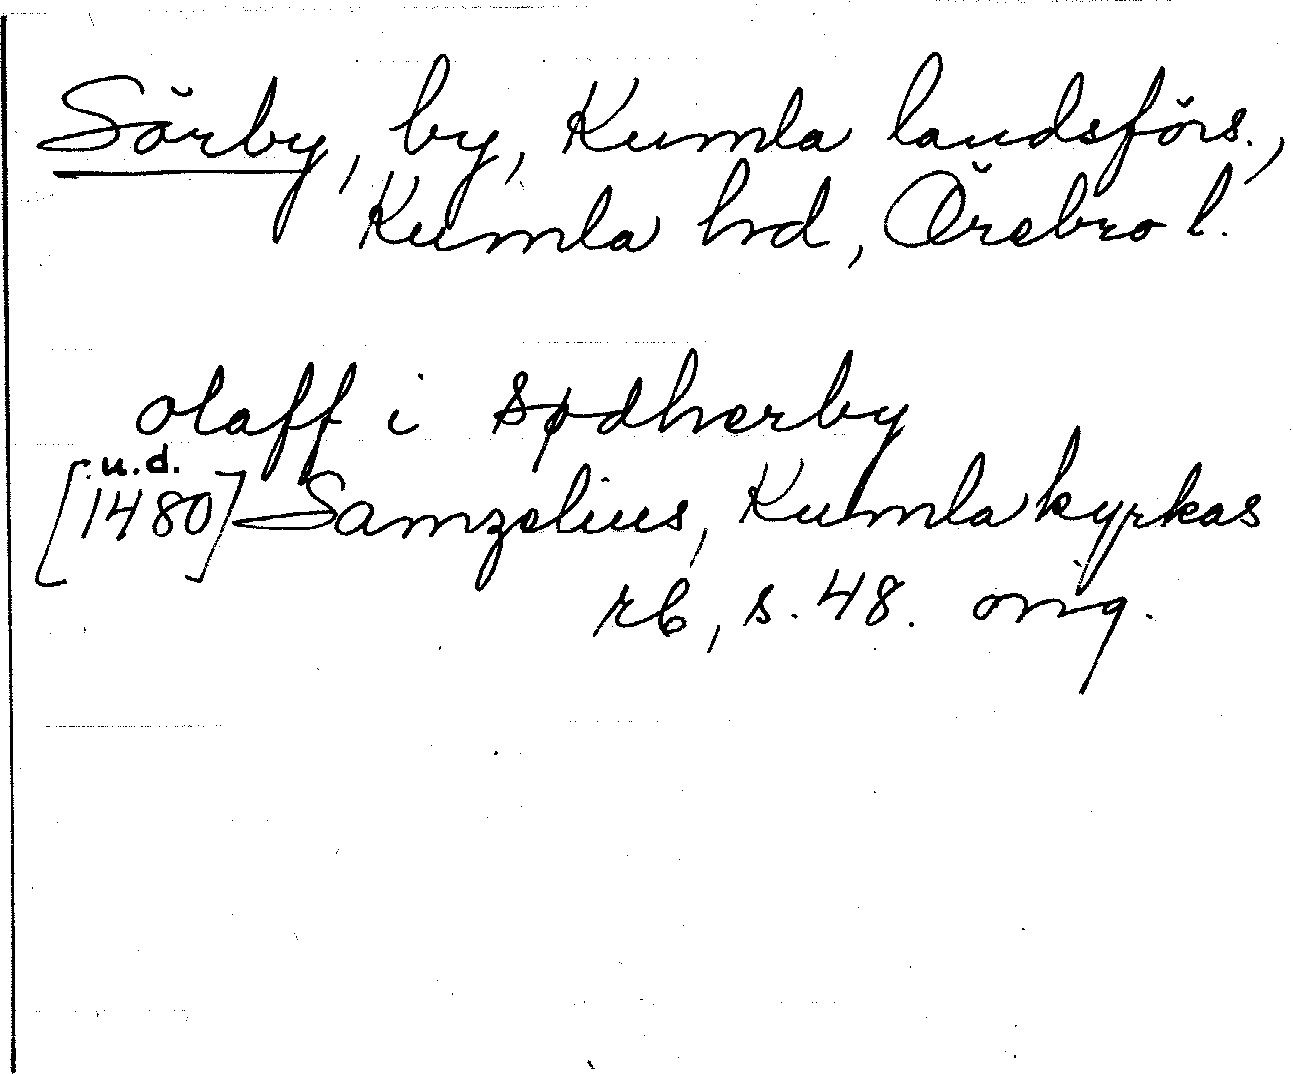 Sörby, by, Kumla landsförs.,
Kumla hd, Örebro l.
olaff i sødherby
u.d.
[1480] Samzelius, Kumla kyrkas
rb, s. 48. orig.